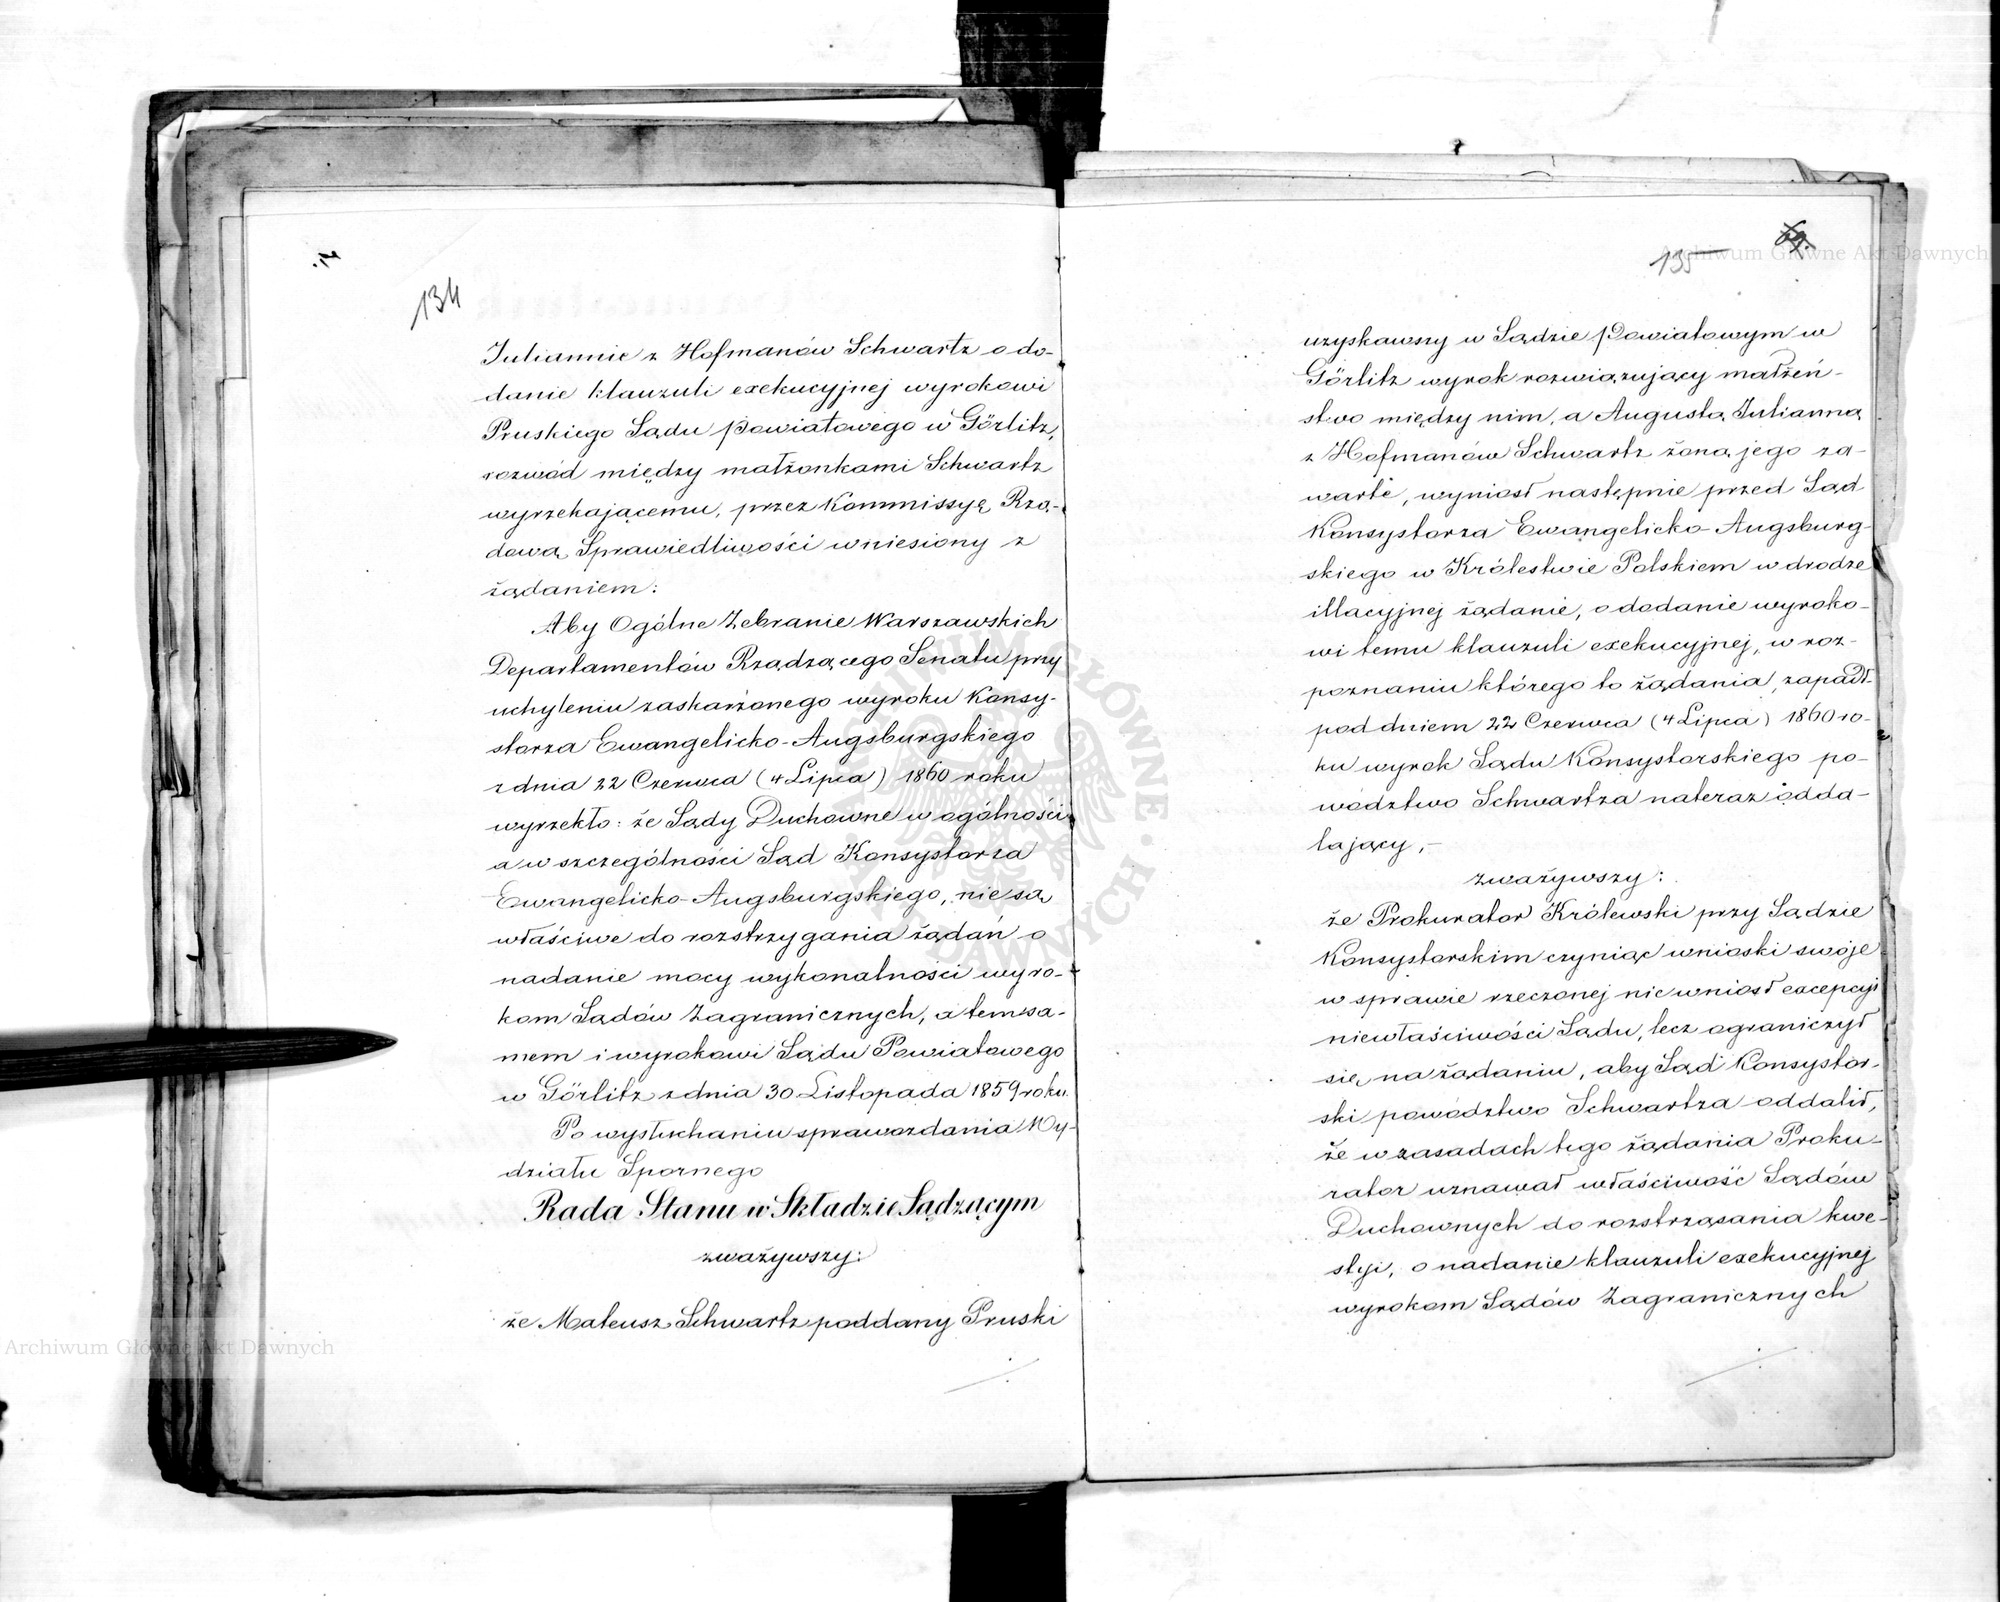 134
Juliannie z Hofmanów Schwartz o do-
danie klauzuli exekucyjnej wyrokowi
Pruskiego Sądu Powiatowego w Görlitz,
rozwód między małżonkami Schwartz
wyrzekającemu, przez Kommissyę Rzą-
dową Sprawiedliwości wniesiony z
żądaniem:
Aby Ogólne Zebranie Warszawskich
Departamentów Rządzącego Senatu przy
uchyleniu zaskarżonego wyroku Konsy-
storza Ewangelicko-Augsburgskiego
z dnia 22 Czerwca (4 Lipca) 1860 roku
wyrzekło: że Sądy Duchowne w ogólności
a w szczególności Sąd Konsystorza
Ewangelicko-Augsburgskiego, nie są
właściwe do rozstrzygania żądań o
nadanie mocy wykonalności wyro-
kom Sądów Zagranicznych, a temsa-
mem i wyrokowi Sądu Powiatowego
w Görlitz z dnia 30 Listopada 1859 roku.
Po wysłuchaniu sprawozdania Wy-
działu Spornego
Rada Stanu w Składzie Sądzącym
zważywszy:
że Mateusz Schwartz poddany Pruski
135
69.
uzyskawszy w Sądzie Powiatowym w
Görlitz wyrok rozwiązujący małżeń-
stwo między nim, a Augustą Julianną
z Hofmanów Schwartz żoną jego za-
warte, wyniosł następnie przed Sąd
Konsystorza Ewangelicko-Augsburg-
skiego w Królestwie Polskiem w drodze
illacyjnej żądanie, o dodanie wyroko-
wi temu klauzuli exekucyjnej, w roz-
poznaniu którego to żądania, zapadł
pod dniem 22 Czerwca (4 Lipca) 1860 ro-
ku wyrok Sądu Konsystorskiego po-
wództwo Schwartza nateraz odda-
lający,-
zważywszy:
że Prokurator Królewski przy Sądzie
Konsystorskim czyniąc wnioski swoje
w sprawie rzeczonej nie wniosł excepcyi
niewłaściwości Sądu, lecz ograniczył
się na żądaniu, aby Sąd Konsystor-
ski powództwo Schwartza oddalił,
że w zasadach tego żądania Proku-
rator uznawał właściwość Sądów
Duchownych do rozstrząsania kwe-
styi, o nadanie klauzuli exekucyjnej
wyrokom Sądów Zagranicznych
Archiwum Główne Akt Dawnych
Archiwum Główne Akt Dawnych